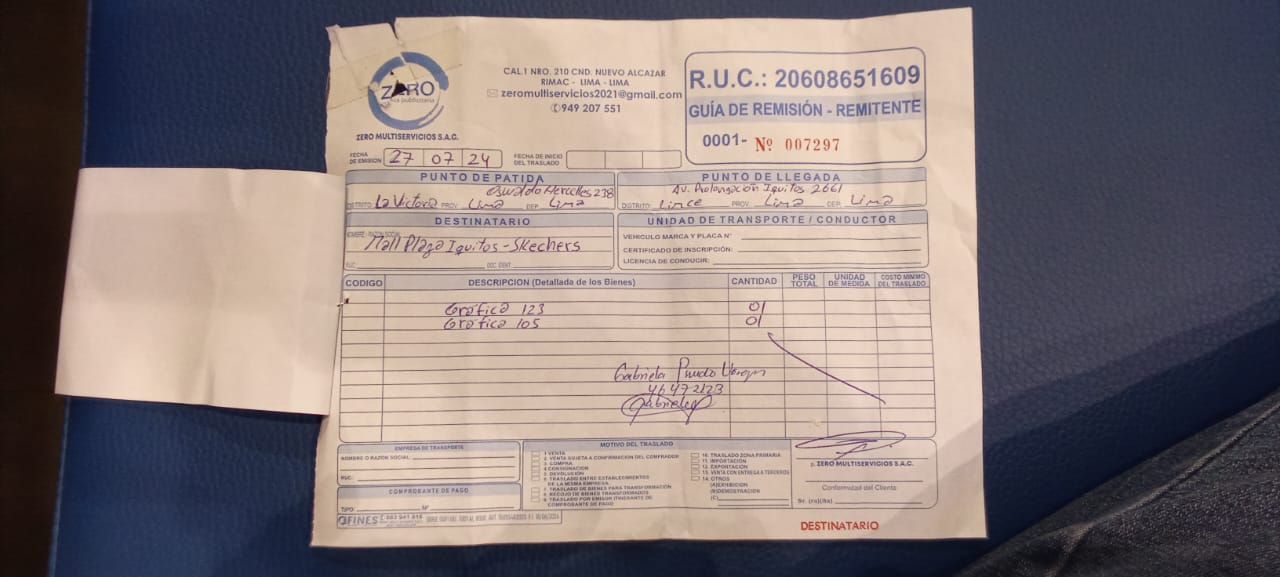 ZERO
ZERO MULTISERVICIOS S.A.C.
CAL.1 NRO. 210 CND. NUEVO ALCAZAR
RIMAC - LIMA - LIMA
zeromultiservicios2021@gmail.com
949 207 551
R.U.C.: 20608651609
GUÍA DE REMISIÓN - REMITENTE
0001- Nº 007297
FECHA DE EMISIÓN 27 07 24 FECHA DE INICIO DEL TRASLADO
PUNTO DE PATIDA
Oswaldo Hercelles 238
DISTRITO La Victoria PROV. Lima DEP. Lima
PUNTO DE LLEGADA
Av. Prolongación Iquitos 2661
DISTRITO Lince PROV. Lima DEP. Lima
DESTINATARIO
NOMBRE - RAZON SOCIAL
Mall Plaza Iquitos - Skechers
RUC. DOC. IDENT.
UNIDAD DE TRANSPORTE / CONDUCTOR
VEHICULO MARCA Y PLACA Nº
CERTIFICADO DE INSCRIPCIÓN:
LICENCIA DE CONDUCIR:
CODIGO DESCRIPCION (Detallada de los Bienes) CANTIDAD PESO TOTAL UNIDAD DE MEDIDA COSTO MINIMO DEL TRASLADO
Gráfica 123 01
Gráfica 105 01
Gabriela
46472123
EMPRESA DE TRANSPORTE
NOMBRE O RAZON SOCIAL
RUC:
COMPROBANTE DE PAGO
TIPO: Nº
MOTIVO DEL TRASLADO
1 VENTA
2. VENTA SUJETA A CONFIRMACION DEL COMPRADOR
3. COMPRA
4. CONSIGNACION
5. DEVOLUCIÓN
6. TRASLADO ENTRE ESTABLECIMIENTOS
DE LA MISMA EMPRESA
7. TRASLADO DE BIENES PARA TRANSFORMACIÓN
8. RECOJO DE BIENES TRANSFORMADOS
9. TRASLADO POR EMISOR ITINERANTE DE
COMPROBANTE DE PAGO
10. TRASLADO ZONA PRIMARIA
11. IMPORTACIÓN
12. EXPORTACIÓN
13. VENTA CON ENTREGA A TERCEROS
14. OTROS
(A)EXHIBICION
(B)DEMOSTRACIÓN
(C)
p. ZERO MULTISERVICIOS S.A.C.
Conformidad del Cliente
Sr. (ra)(ita)
FINES
DESTINATARIO